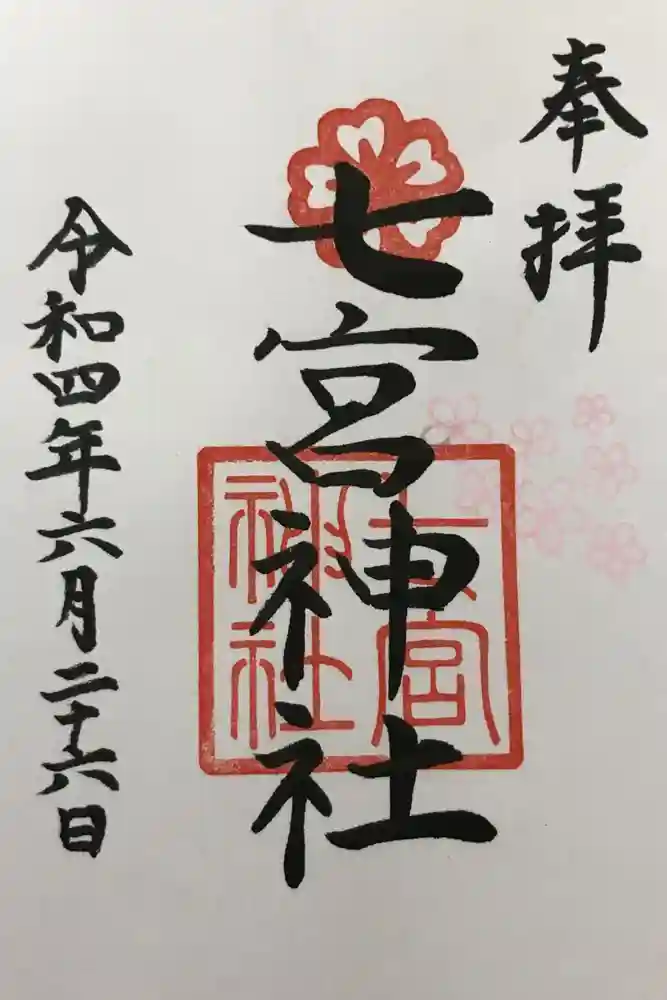 奉拝
七宮神社
七宮神社
令和四年六月二十六日